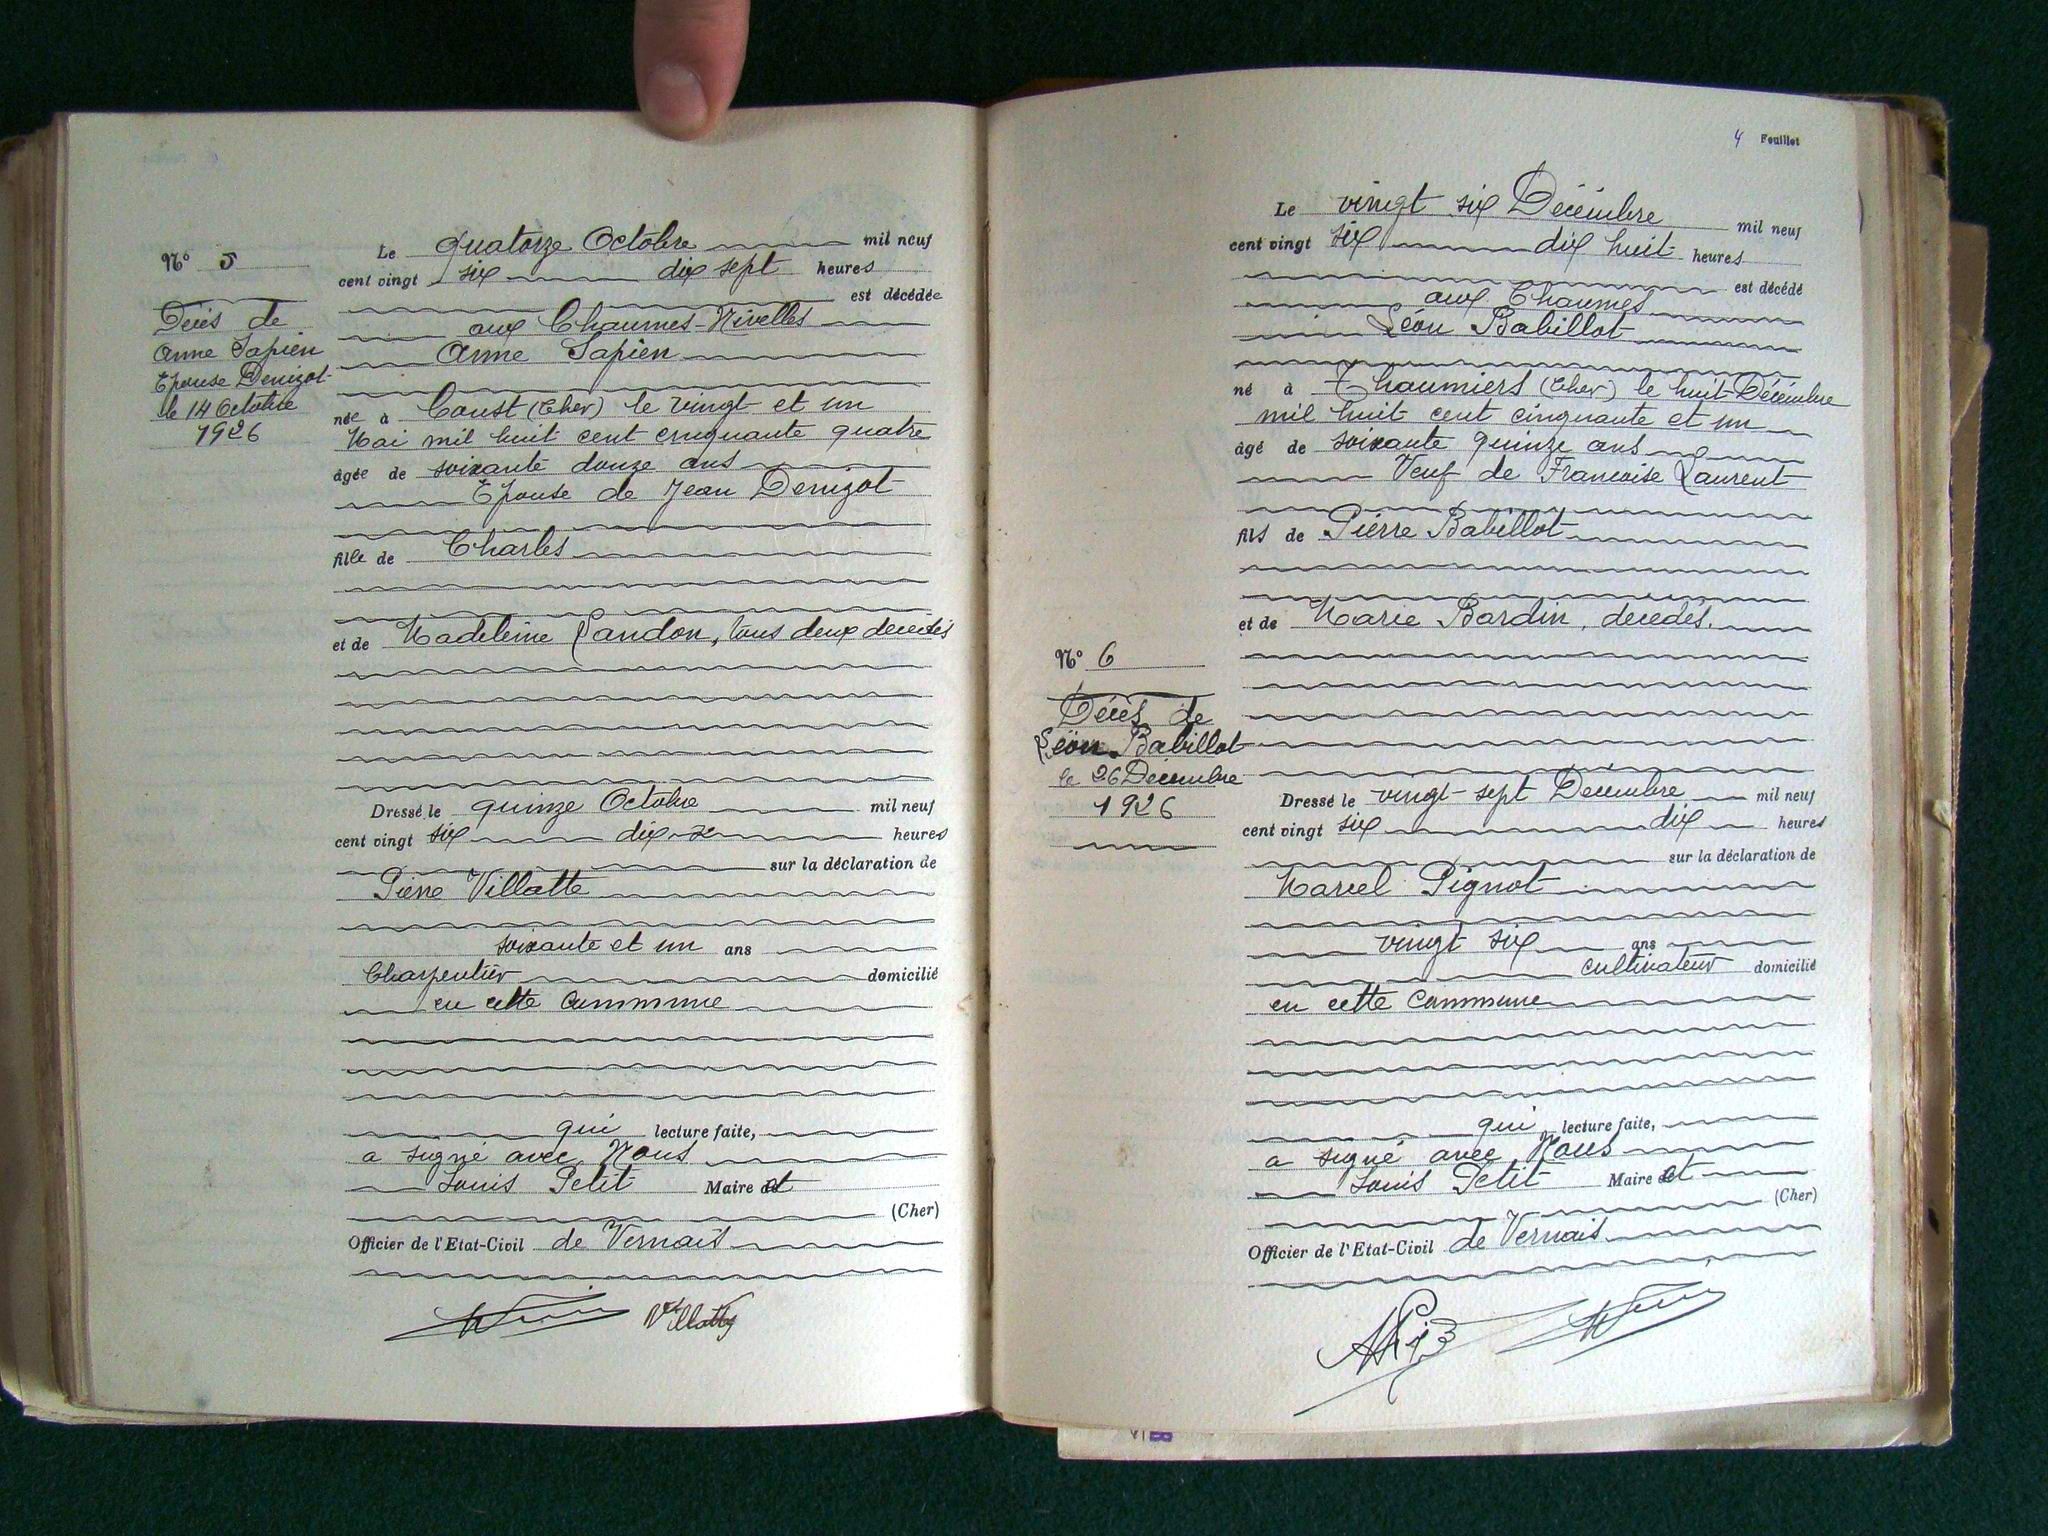 Nº 5
Décès de
Anne Sapien
Epouse Denizot
le 14 Octobre
1926
Le quatorze Octobre mil neuf
cent vingt six dix sept heures
est décédée
aux Chaumes-Nivelles
Anne Sapien
née à Coust (Cher) le vingt et un
Mai mil huit cent cinquante quatre
âgée de soixante douze ans
Epouse de Jean Denizot
fille de Charles
et de Madeleine Landon, tous deux décédés
Dressé le quinze Octobre mil neuf
cent vingt six dix heures
sur la déclaration de
Pierre Villatte
soixante et un ans
Charpentier domicilié
en cette commune
qui lecture faite,
a signé avec Nous
Louis Petit Maire et
(Cher)
Officier de l'Etat-Civil de Vernais
Villatte
4 Feuillet
Nº 6
Décès de
Léon Babillot
le 26 Décembre
1926
Le vingt six Décembre mil neuf
cent vingt six dix huit heures
est décédé
aux Chaumes
Léon Babillot
né à Chaumiers (Cher) le huit Décembre
mil huit cent cinquante et un
âgé de soixante quinze ans
Veuf de Francoise Laurent
fils de Pierre Babillot
et de Marie Bardin, décédés.
Dressé le vingt-sept Décembre mil neuf
cent vingt six dix heures
sur la déclaration de
Marcel Pignot
vingt six ans
cultivateur domicilié
en cette commune
qui lecture faite,
a signé avec Nous
Louis Petit Maire et
(Cher)
Officier de l'Etat-Civil de Vernais